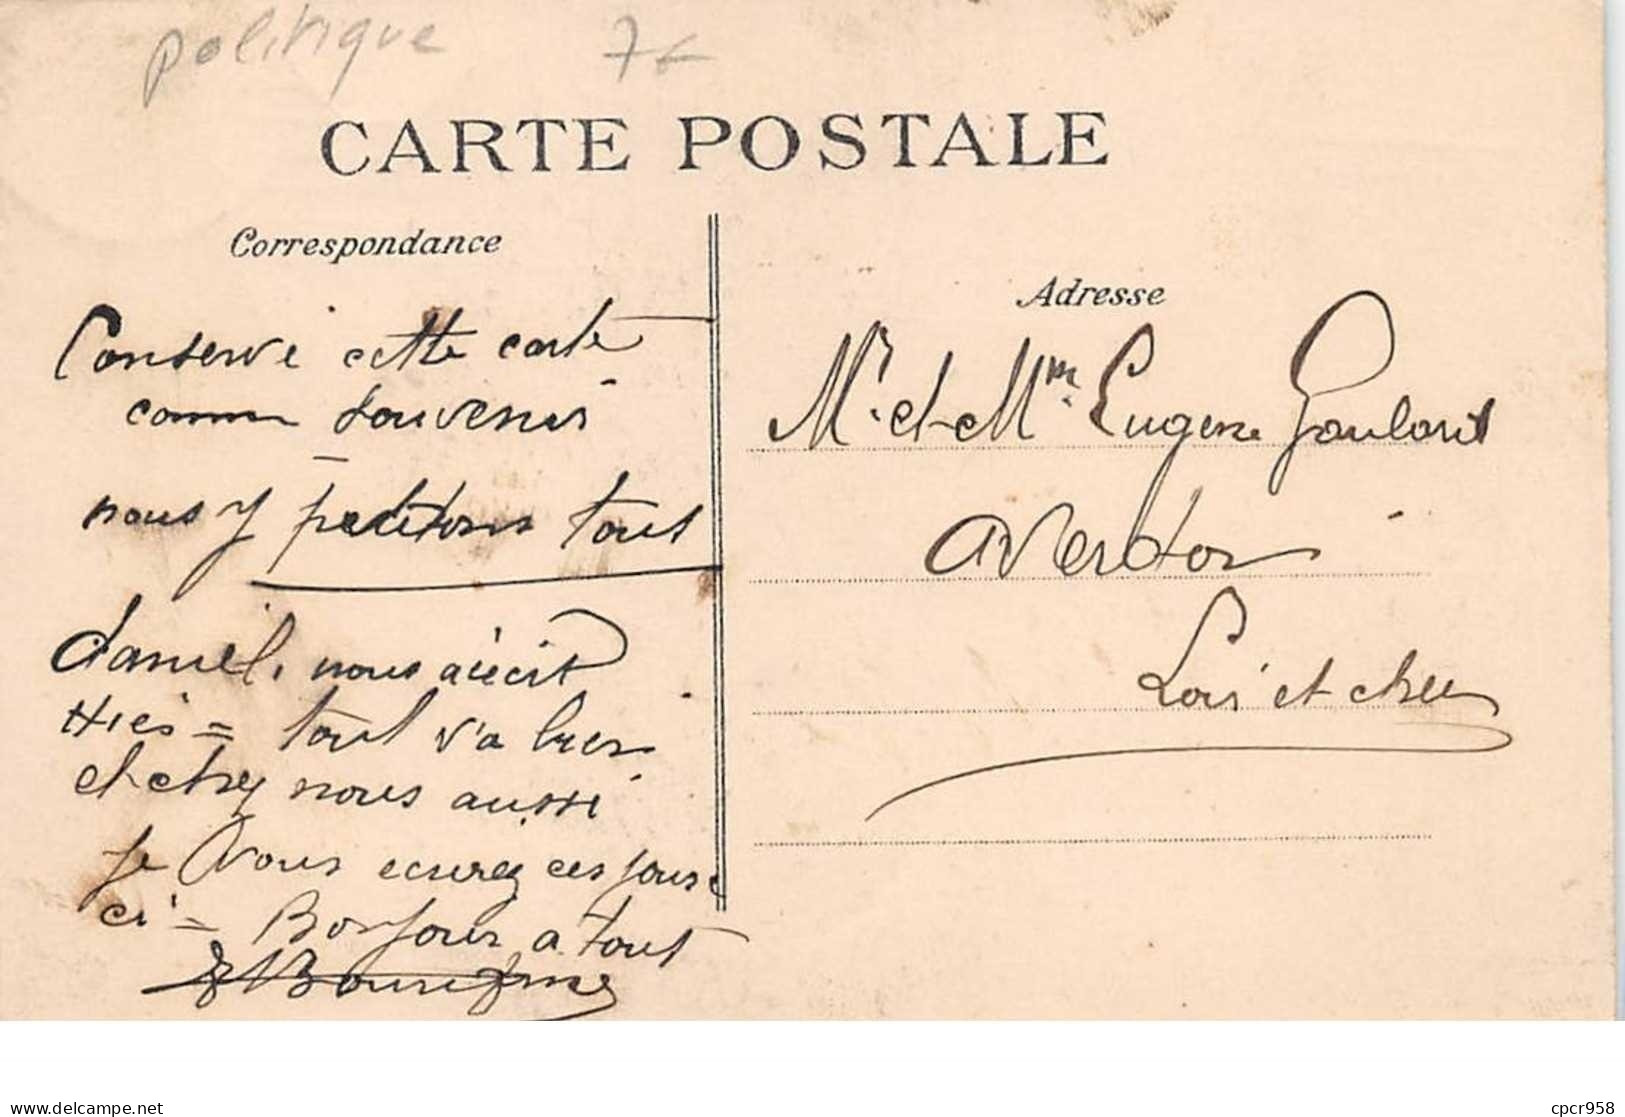 politique 76
CARTE POSTALE
Correspondance
Conserve cette carte
comme souvenir
nous y tout
daniel, nous a écrit
Hier = tout va bien
et chez nous aussi
je vous ecurez ces jours
ci = Bonjour a tout
Adresse
Mr. et Mme. Eugene
averdon
Loir et cher
delcampe.net
cpcr958